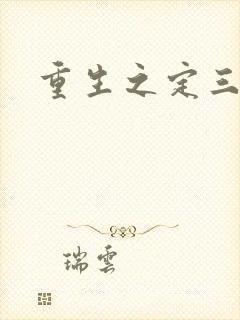 重生之定三
瑞雲